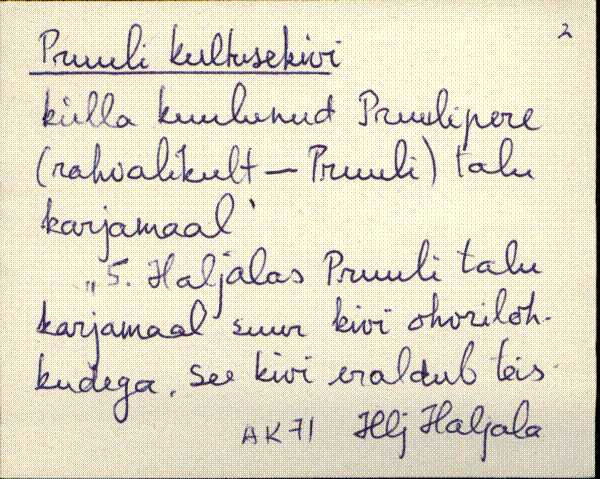 2
Pruuli kultusekivi
külla kuulunud Pruulipere
(rahvalikult — Pruuli) talu
karjamaal
„5. Haljalas Pruuli talu
karjamaal suur kivi ohvriloh-
kudega. See kivi eraldub teis-
AK 71 Hlj Haljala